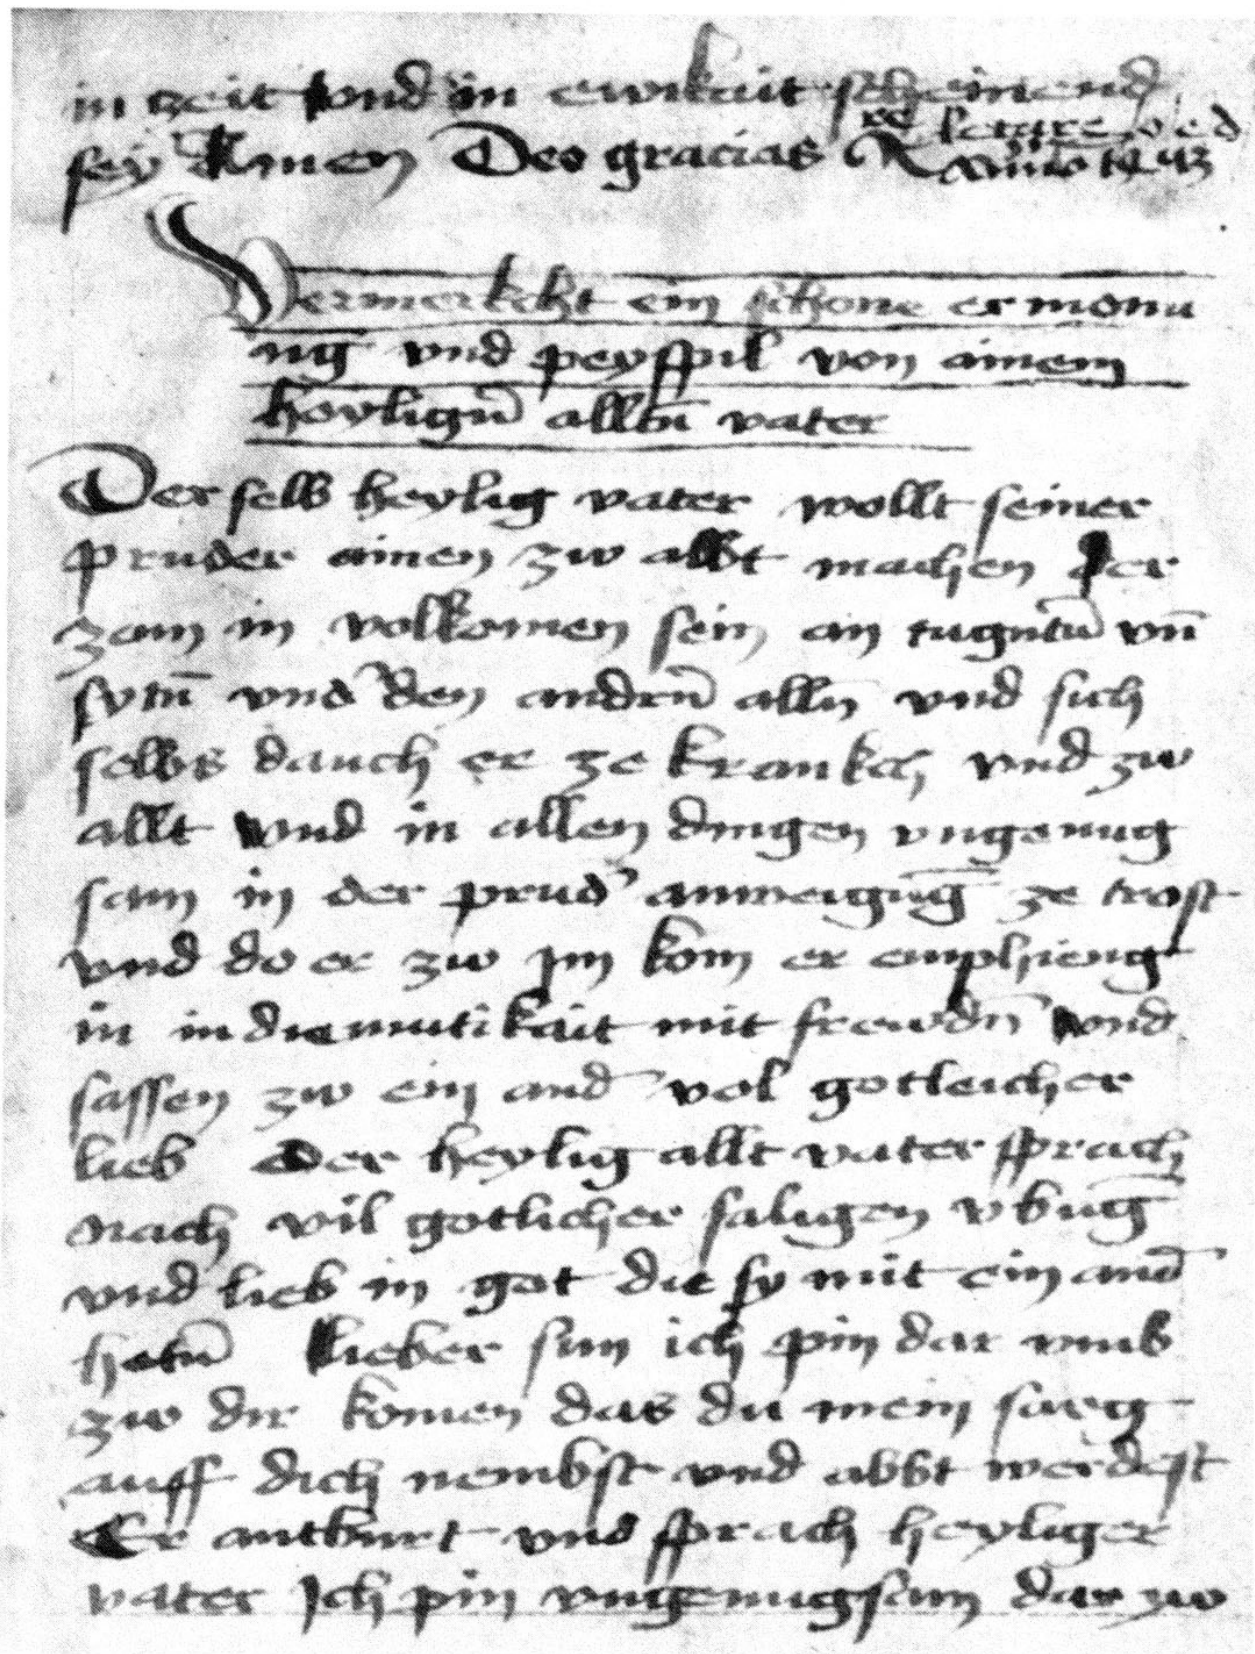 in zeit vnd in ewikait scheinend
sey Amen Deo gracias
Vermerkcht ein schone ermonu
ng vnd peyspil von ainem
heyligñ alltñ vater
Der selb heylig vater wollt seiner
pruder ainen zw abbt machen der
zam in volkomen sein an tugntñ vñ
sytñ vnd den andrñ allñ vnd sich
selbs dauch er ze krankch vnd zw
allt vnd in allen dingen vngenug
sam in der prud' anweigūg ze trost
vnd do er zw jm kom er emphieng
in in diemutikait mit frewdñ vnd
sassen zw ein and' vol gotleicher
lieb Der heylig allt vater sprach
Nach vil gotlicher saligen vbūg
vnd lieb in got die sy mit ein and'
hetñ lieber sun ich pin dar vmb
zw dir komen das du mein sarg
auff dich nembst vnd abbt werdest
Er antburt vnd sprach heyliger
vater Ich pin vngenugsam dar zw